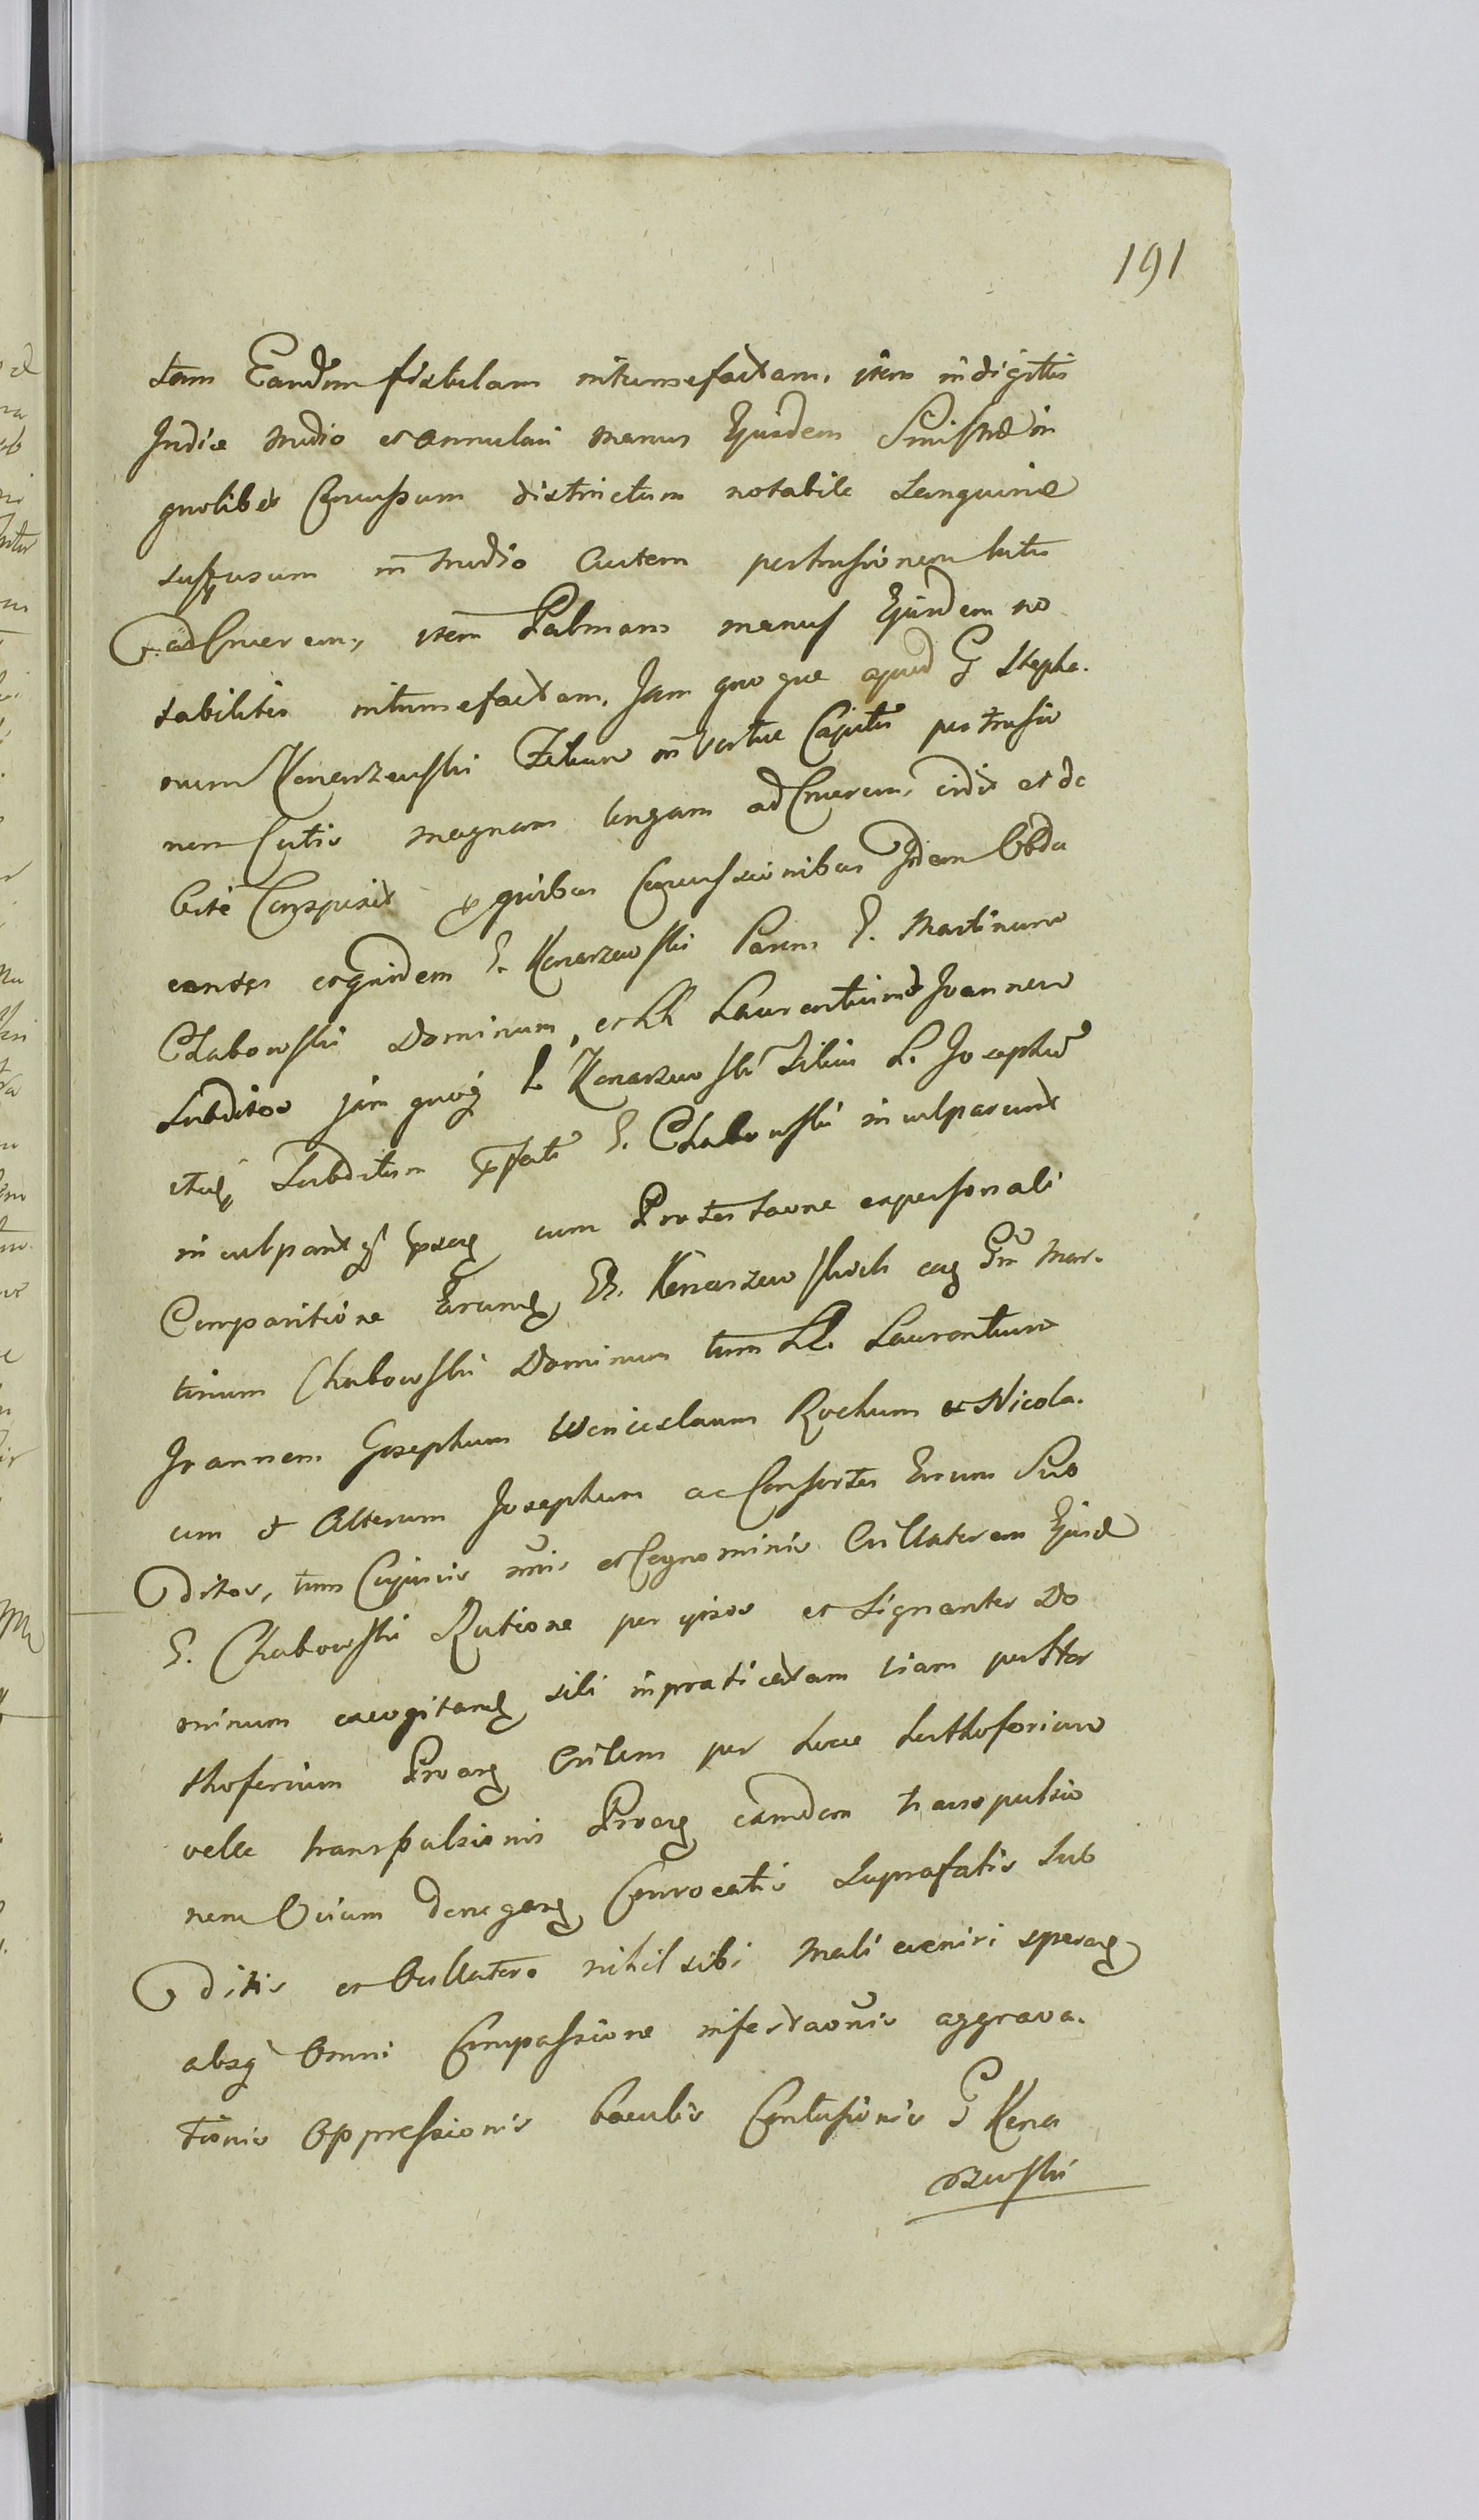 191
tam Eandem fistulam intumefactam, item in digitis
Indice medio et annulari manus Ejusdem Sinistrae in
quolibet Concussum districtum notabile Sanguine
suffusum in medio Cutem pertusionem
ad Cruorem, item Palmam manus Ejusdem no
tabiliter intumefactam. Jam quoque apud G Stepha.
num Konarzewski Filium in vertice Capitis pertusio
nem Cutis magnam longam ad Cruorem, vidit et de
bite Conspexit quibus Concussionibus Idem
eandes et quidem G. Konarzewski Parens G. Martinum
Chabowski Dominum, et LL Laurentium & Joannem
Subditos jam quoq L Konarzewski Filius L. Josephum
itaq Subditum pfati G. Chabowski inculparunt
inculpantq cum Protestaone ex personali
Comparitione Earundem GG. Konarzewskich eag Gm Mar.
tinum Chabowski Dominum tum LL. Laurentium
Joannem Josephum Wenceslaum Rochum et Nicola.
um & Alterum Josephum ac Consortes Eorum Sub
ditos, tum Cujusvis nnis et Cognominis Ovillatorem Ejusd
G. Chabowski Ratione per ipsos et Signanter Do
minum excogitandq sibi inpraticatam viam per Hos
thoforium Proag Ovilem per Suae Losthoforium
velle transpulsionis Proag eamdem transpulsio
nem Ovium denegang Convocatis Suprafatis Sub
ditis et Ovillatore nihil sibi mali eveniri sperang
absq Omni Compassione infestaonis aggrava.
tionis Oppressionis baculis Contusionis G Kona
rzewski